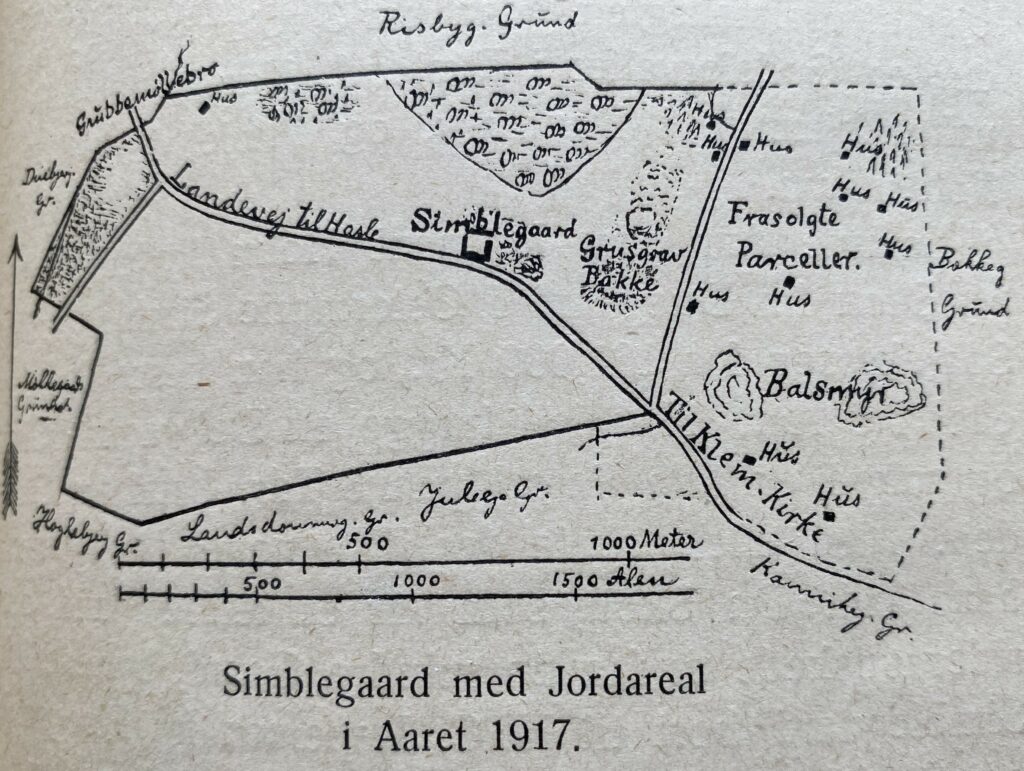 Risbyg. Grund
Grubbemöllebro
Hus
Hus
Hus
Hus
Hus
Landevej til Hasle
Simblegaard
Grusgrav
Bakke
Frasolgte
Parceller.
Hus
Hus
Hus
Hus
Hus
Bakkeg
Grund
Gr.
Balsmyr
Til Klem. Kirke
Hus
Hus
Gr.
Landsdommerg. Gr.
Juleg. Gr.
Kannikeg. Gr.
500 1000 Meter
500 1000 1500 Alen
Simblegaard med Jordareal
i Aaret 1917.